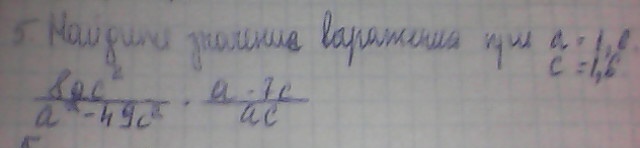 5 Найдите значение варажения при a = 1,
c = 1,6
8ac² / a² - 49c² · a - 7c / ac